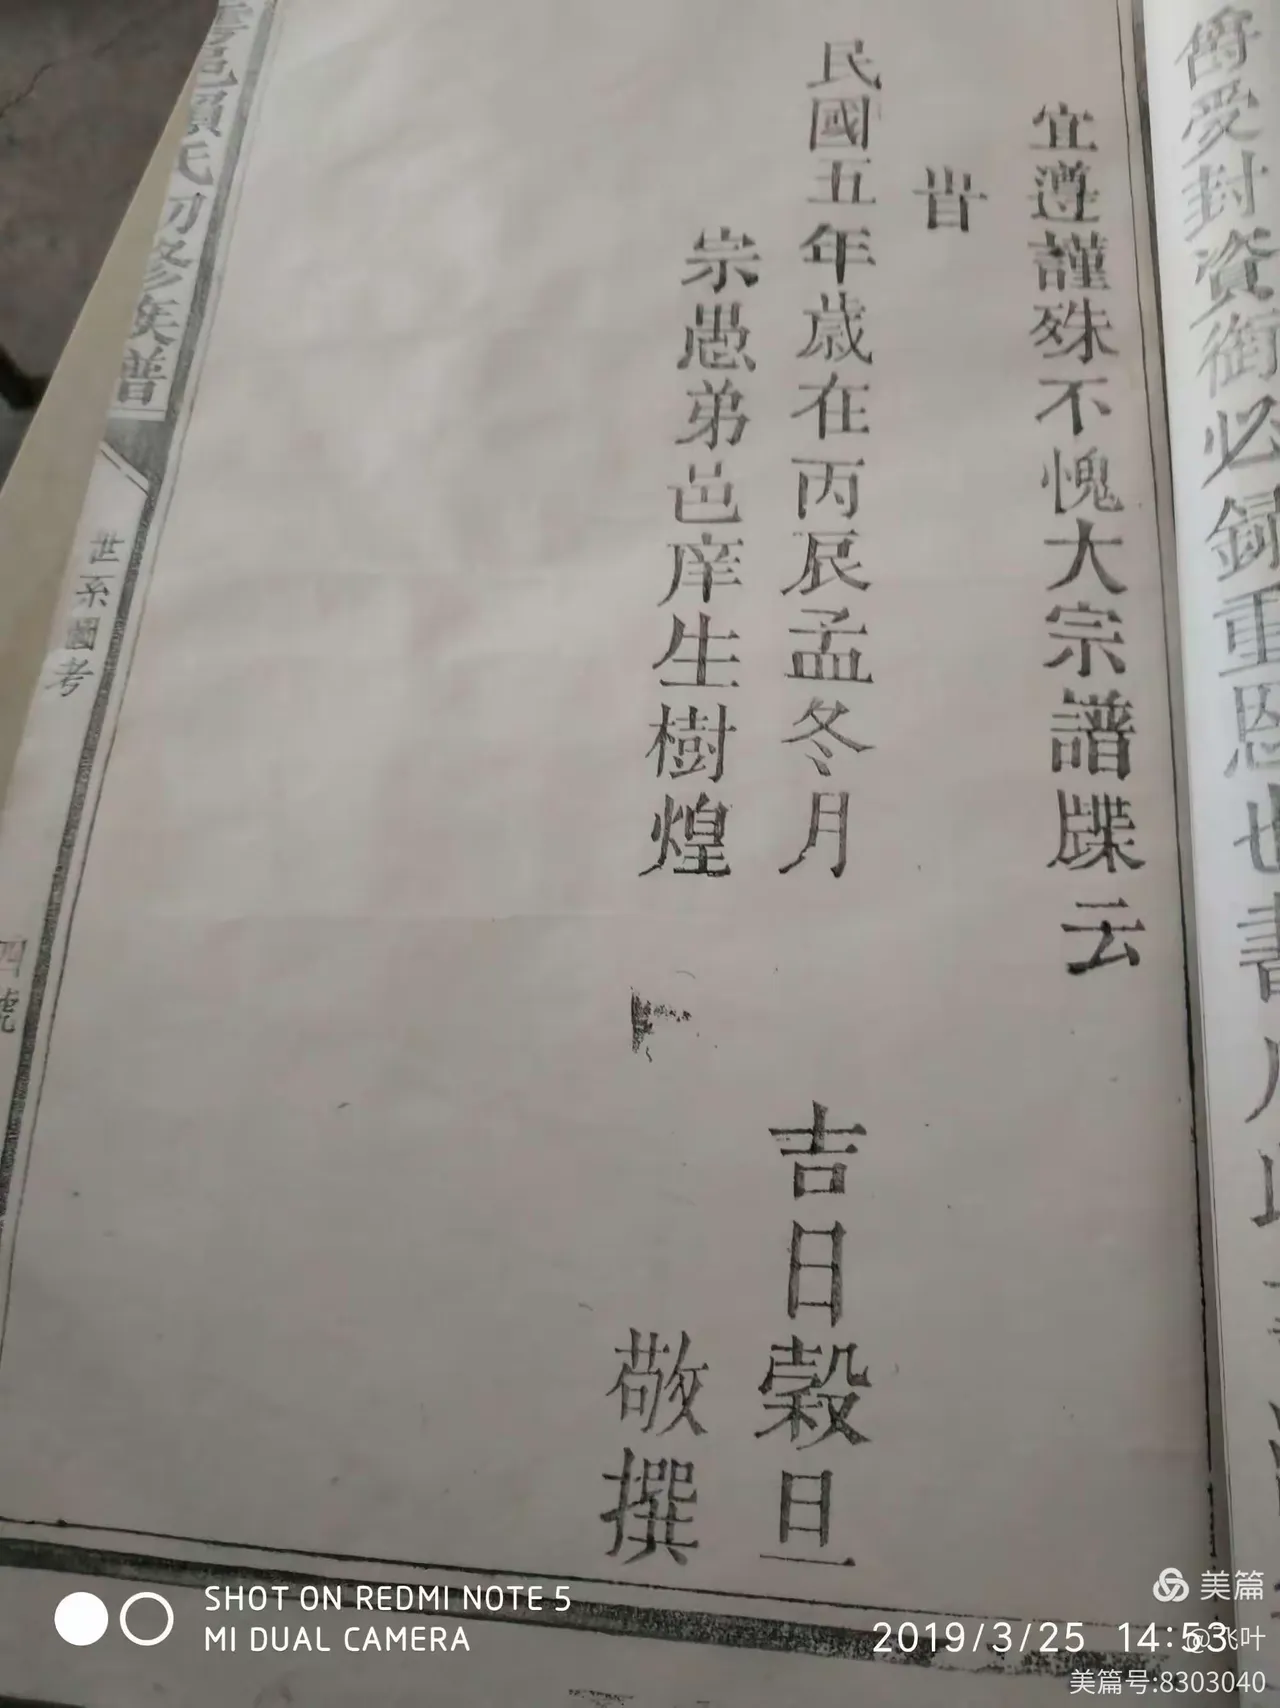 爵受封資銜必錄重恩也書
宜遵謹殊不愧大宗譜牒云
旹
民國五年歲在丙辰孟冬月 吉日穀旦
宗愚弟邑庠生樹煌 敬撰
邑賴氏初修族譜
世系圖考
四號
SHOT ON REDMI NOTE 5
MI DUAL CAMERA
2019/3/25 14:53
美篇
@飞叶
美篇号:8303040